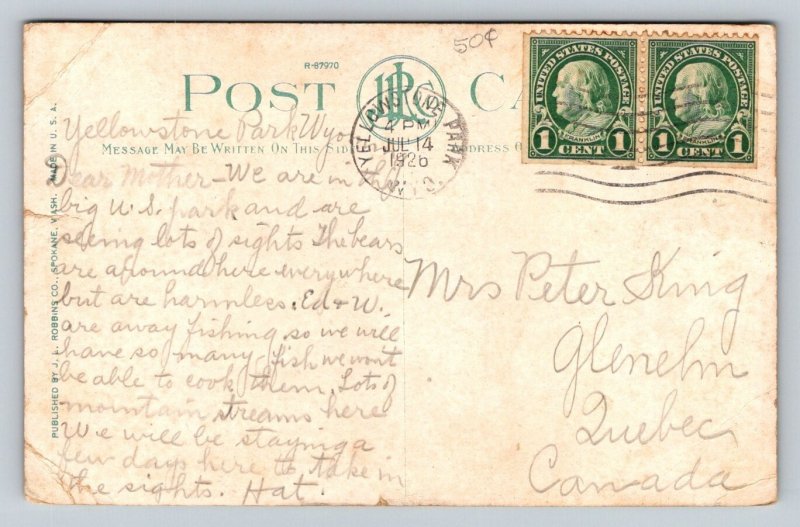 50¢
R-87970
POST CA
JLR
UNITED STATES POSTAGE
FRANKLIN
1 CENT 1
UNITED STATES POSTAGE
FRANKLIN
1 CENT 1
YELLOWSTONE PARK
4 PM
JUL 14
1926
WYO.
MESSAGE MAY BE WRITTEN ON THIS SIDE
ADDRESS O
MADE IN U.S.A.
PUBLISHED BY J. L. ROBBINS CO., SPOKANE, WASH.
Yellowstone Park Wyo
Dear Mother - We are in the
big U.S. park and are
seeing lots of sights The bears
are around here everywhere
but are harmless. Ed & W.
are away fishing so we will
have so many fish we wont
be able to cook them. Lots of
mountain streams here
We will be staying a
few days here to take in
the sights. Hat.
Mrs Peter King
Glenelm
Quebec
Canada